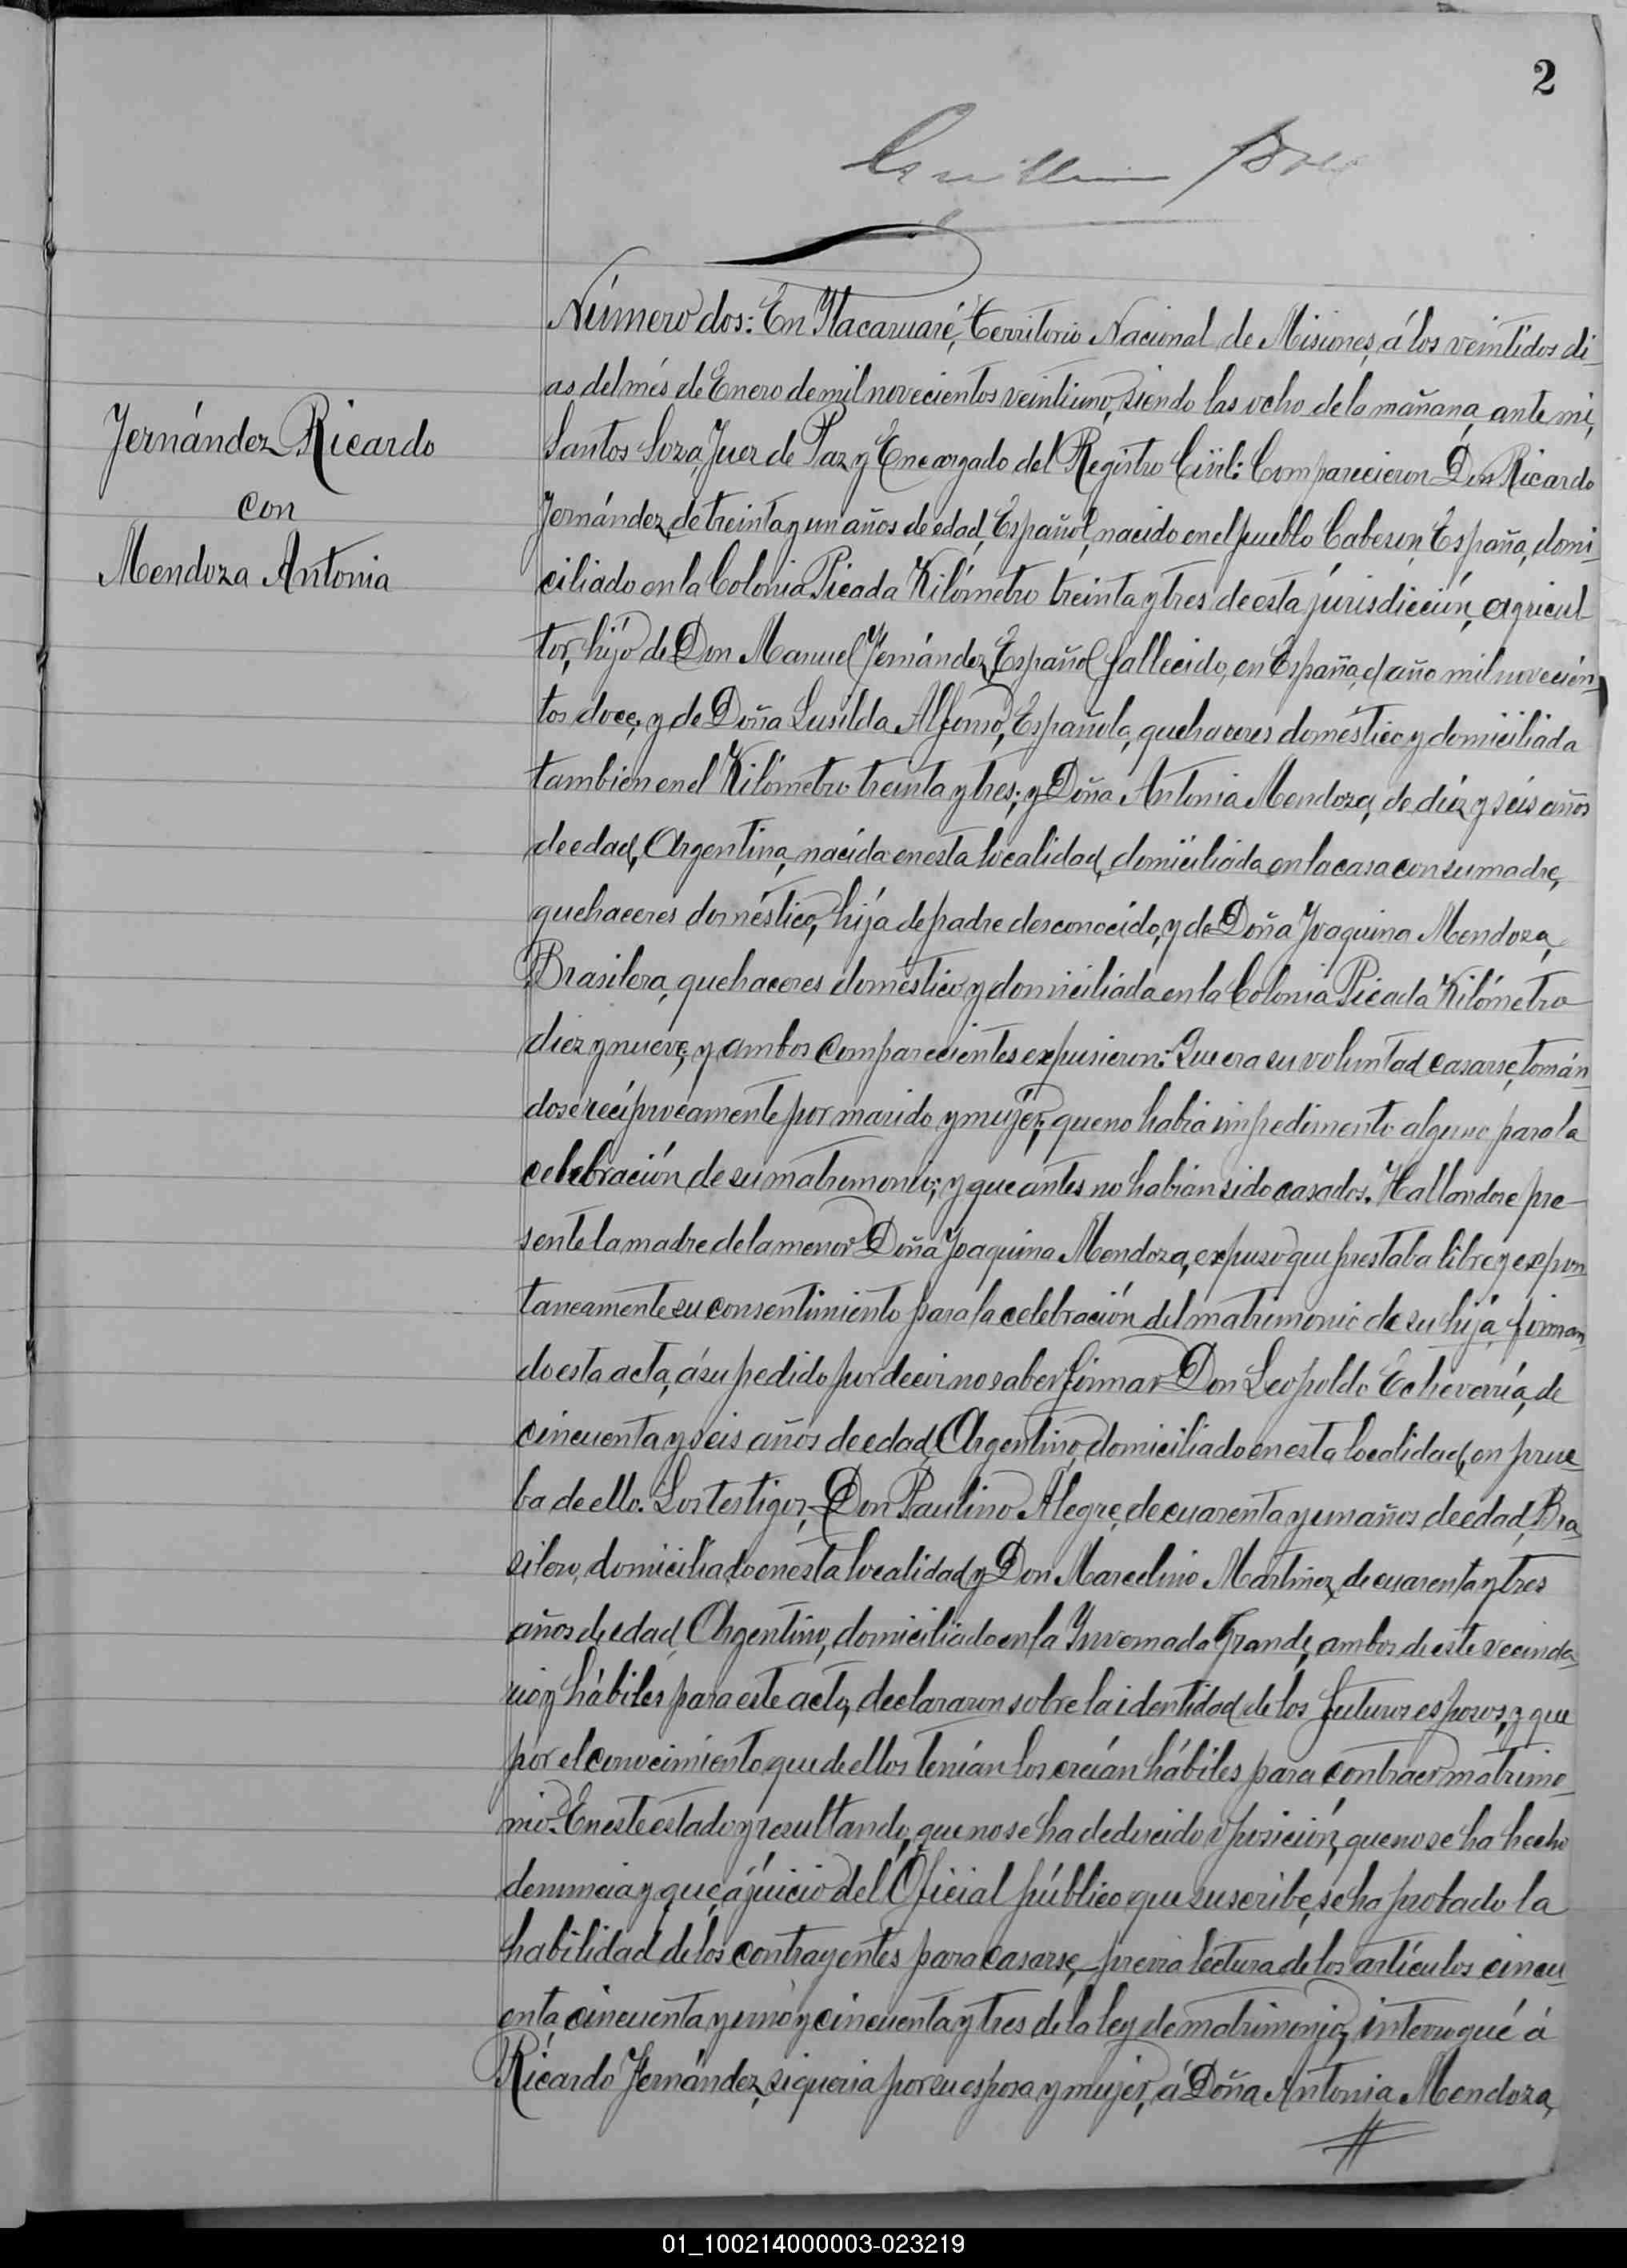 2
Número dos: En Itacaruaré, Territorio Nacional de Misiones, á los veintidos di-
as del més de Enero de mil novecientos veintiuno, siendo las ocho de la mañana, ante mi,
Fernández Ricardo
con
Mendoza Antonia
Santos Soza, Juez de Paz y Encargado del Registro Civil: Comparecieron Don Ricardo
Fernández, de treinta y un años de edad, Español, nacido en el pueblo Caberon, España, domi-
ciliado en la Colonia Picada Kilómetro treinta y tres de esta júrisdicción, agricul-
tor, hijo de Don Manuel Fernández, Español, fallecido, en España, el año mil novecién-
tos doce, y de Doña Lusilda Alfonso, Española, quehaceres doméstico y domiciliada
tambien en el Kilómetro treinta y tres; y Doña Antonia Mendoza, de diéz y séis años
de edad, Argentina, nacida en esta localidad, domiciliada en la casa con su madre,
quehaceres doméstico, hija de padre desconocido, y de Doña Joaquina Mendoza,
Brasilera, quehaceres doméstico y domiciliada en la Colonia Picada Kilómetro
diez y nueve, y ambos comparecientes expusieron: Que era su voluntad casarse, tomán-
dose recíprocamente por marido y mujer; que no habia impedimento alguno para la
celebración de su matrimonio; y que ántes no habian sido casados. Hallandose pre-
sente la madre de la menor Doña Joaquina Mendoza, expuso que prestaba libre y expon-
taneamente su consentimiento para la celebración del matrimonio de su hija, firman-
do esta acta, á su pedido por decir no saber firmar Don Leopoldo Echeverría, de
cincuenta y séis años de edad, Argentino, domiciliado en esta localidad, en prue-
ba de ello. Los testigos, Don Paulino Alegre, de cuarenta y un años de edad, Bra-
silero, domiciliado en esta localidad y Don Marcelino Martinez, de cuarenta y tres
años de edad, Argentino, domiciliado en la Invernada Grande, ambos de este vecinda-
rio y hábiles para este acto, declararon sobre la identidad de los futuros esposos, y que
por el conocimiento que de ellos tenían los creían hábiles para contraer matrimo-
nio. En este estado y resultando, que no se ha deducido oposición, que no se ha hecho
denuncia y que, á júicio del Oficial público que suscribe, se ha probado la
habilidad de los contrayentes para casarse, previa lectura de los artículos cincu-
enta cincuenta y uno y cincuenta y tres de la ley de matrimonio, interrogué á
Ricardo Fernández, si queria por su esposa y mujer, á Doña Antonia Mendoza,
01_100214000003-023219